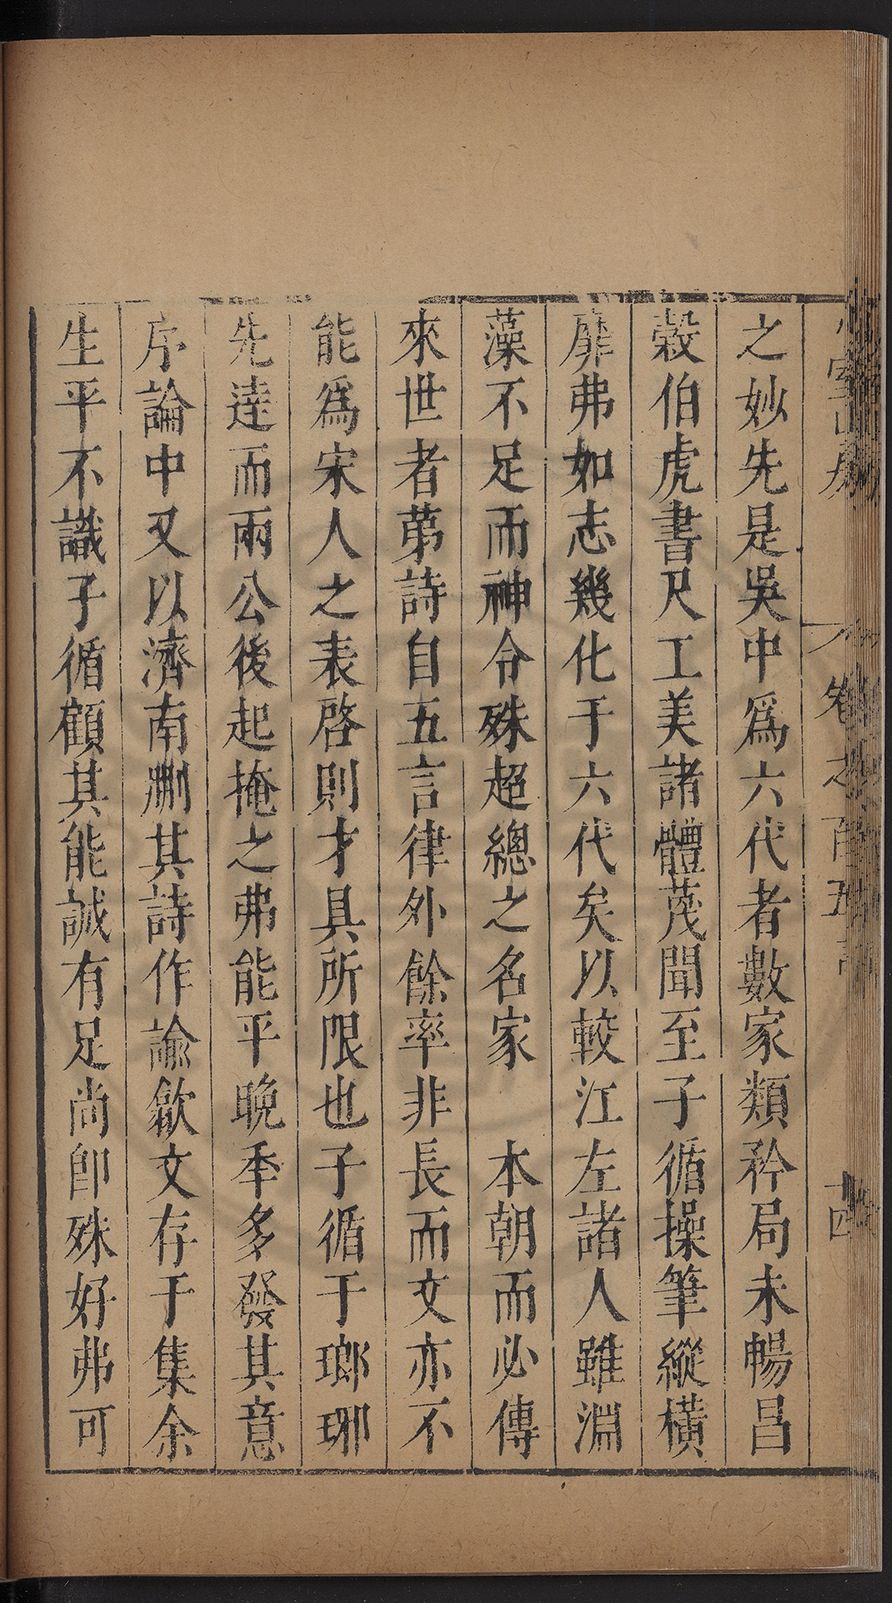 之妙先是吳中爲六代者數家類矜局未暢昌
穀伯虎書尺工美諸體蔑聞至子循操筆縱橫
靡弗如志幾化于六代矣以較江左諸人雖淵
藻不足而神令殊超總之名家　本朝而必傳
來世者苐詩自五言律外餘率非長而文亦不
能爲宋人之表啓則才具所限也子循于瑯琊
先逹而兩公後起掩之弗能平晩季多發其意
序論中又以濟南刪其詩作諭歙文存于集余
生平不識子循顧其能誠有足尚卽殊好弗可
卷之百五
十四